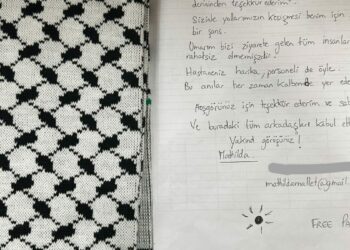 derinden teşekkür ederim..
Sizinle yollarımızın kesişmesi benim için
bir şans.
Umarım bizi ziyarete gelen tüm insanlar
rahatsız olmamışızdır.
Hastaneniz harika, personeli de öyle..
Bu anılar her zaman kalbimde yer ede
Hoşgörünüz için teşekkür ederim ve sab
Ve buradaki tüm arkadaşlara kabul ett
Yakında görüşürüz!
Mathilda
FREE PA